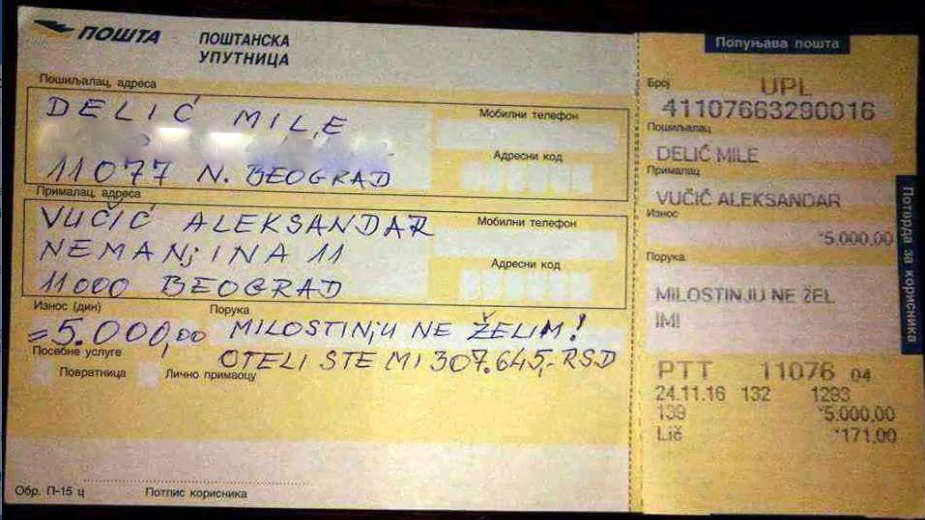 ПОШТА
ПОШТАНСКА
УПУТНИЦА
Пошиљалац, адреса
DELIĆ MILE
11077 N. BEOGRAD
Мобилни телефон
Адресни код
Прималац, адреса
VUČIĆ ALEKSANDAR
NEMANjINA 11
11000 BEOGRAD
Мобилни телефон
Адресни код
Износ (дин)
=5.000,00
Порука
MILOSTINjU NE ŽELIM!
OTELI STE MI 307.645,- RSD
Посебне услуге
Повратница
Лично примаоцу
Обр. П-15 ц
Потпис корисника
Попуњава пошта
Број
UPL
41107663290016
Пошиљалац
DELIĆ MILE
Прималац
VUČIĆ ALEKSANDAR
Износ
*5.000,00
Порука
MILOSTINJU NE ŽEL
IM!
PTT 11076 04
24.11.16 132 1293
139 *5.000,00
Lič *171,00
Потврда за корисника